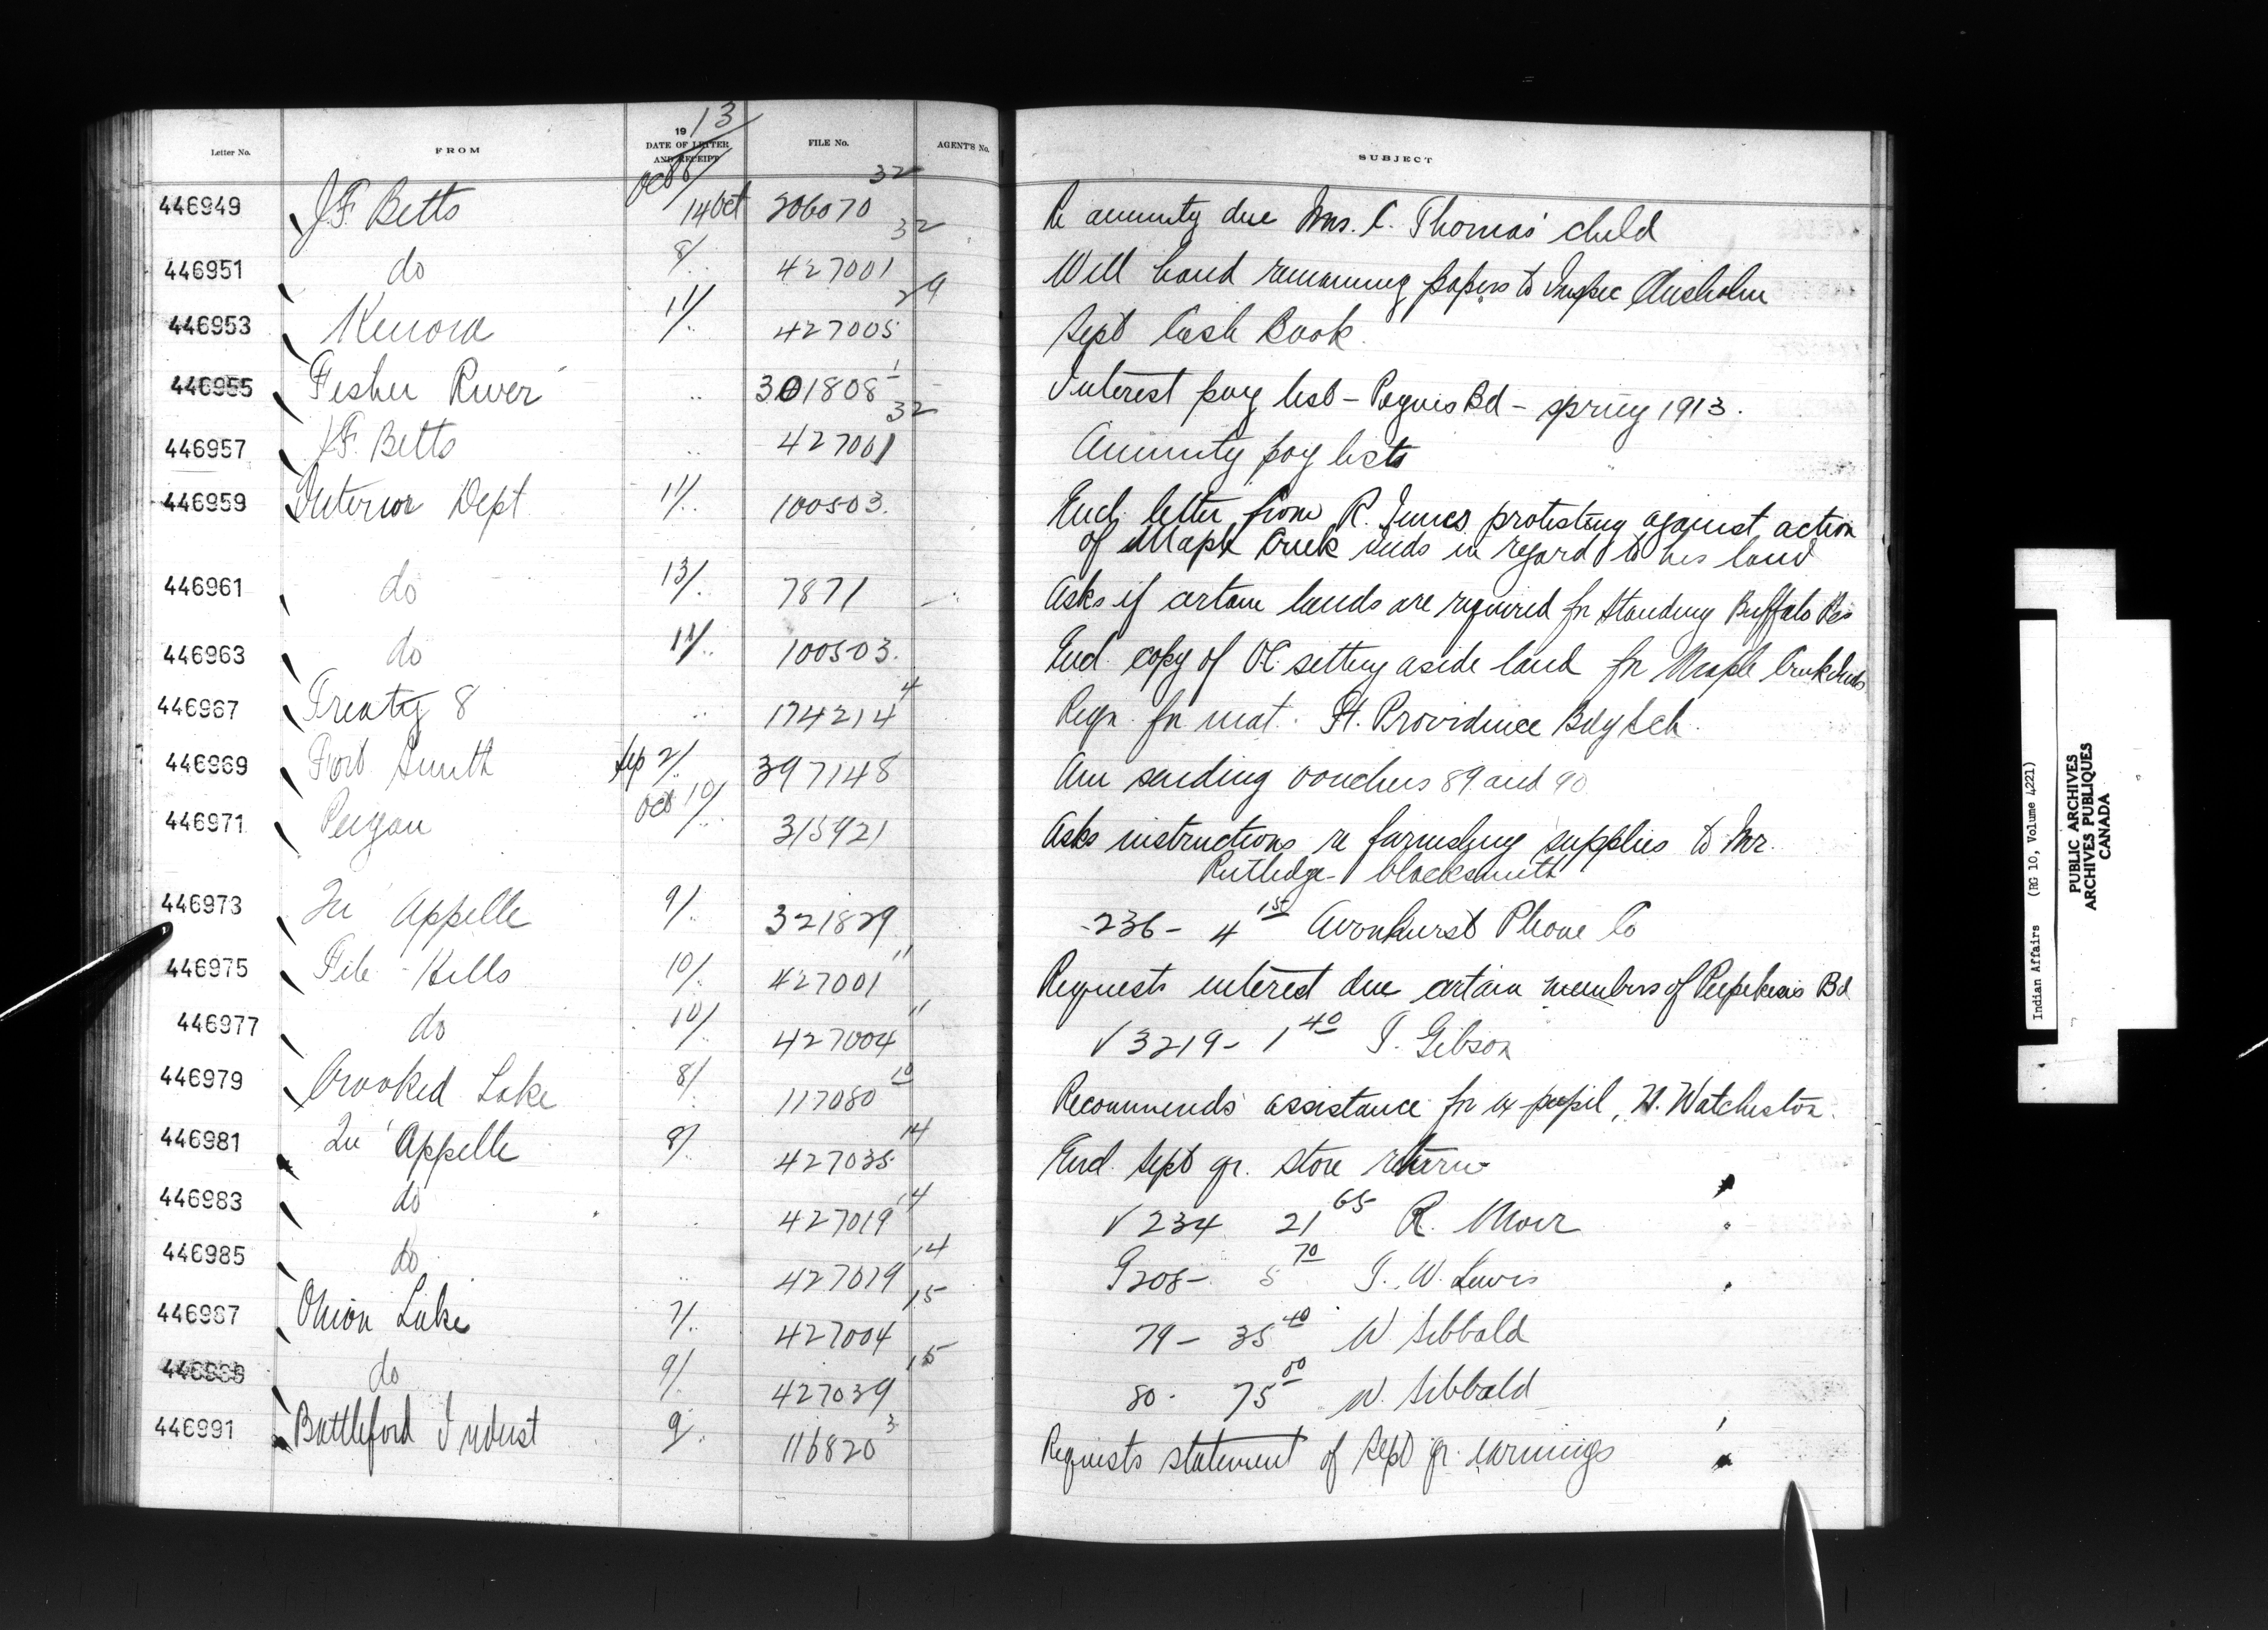 Letter No. FROM 19 13 DATE OF LETTER AND RECEIPT FILE No. AGENT'S No. SUBJECT
Oct 8/
446949 J.F. Betts 14 Oct 206070 32 Re annuity due Mrs. C. Thomas' child
446951 do 8/ 427001 32 Will hand remaining papers to Inspec Chisholm
446953 Kenora 11/ 427005 29 Sept Cash Book
446955 Fisher River .. 301808 1 Interest pay list - Peguis Bd - spring 1913.
446957 J.F. Betts .. 427001 32 Annuity pay lists "
446959 Interior Dept 11/ 100503. Encl. letter from R. Innes protesting against action
of Maple Creek Inds in regard to his land
446961 do 13/ 7871 Asks if certain lands are required for Standing Buffalo Res
446963 do 11/ 100503. Encl. copy of OC. setting aside land for Maple Creek Inds
446967 Treaty 8 .. 174214 4 Reqn. for mat. Ft. Providence Bdg Sch.
446969 Fort Smith Sep 2/ 397148 Am sending vouchers 89 and 90
446971 Peigan Oct 10/ 315921 Asks instructions re furnishing supplies to Mr.
Rutledge - blacksmith
446973 Qu'Appelle 9/ 321829 236 - 4 15 Avonhurst Phone Co
446975 File Hills 10/ 427001 11 Requests interest due certain members of Peepekesis Bd
446977 do 10/ 427004 11 V 3219 - 1 40 T. Gibson
446979 Crooked Lake 8/ 117080 10 Recommends assistance for ex pupil, H. Watcheston.
446981 Qu'Appelle 8/ 427035 14 Encl. Sept qr. store return
446983 do 427019 14 V 234 21 65 R. Moir
446985 do .. 427019 14 G 208 - 5 70 T. W. Lewis
446987 Onion Lake 7/ 427004 15 79 - 35 40 W. Sibbald
do 9/ 427039 15 80 - 75 00 W. Sibbald
446991 Battleford Indust 9/ 116820 3 Requests statement of Sept qr. earnings
Indian Affairs (RG 10, Volume 4221)
PUBLIC ARCHIVES
ARCHIVES PUBLIQUES
CANADA